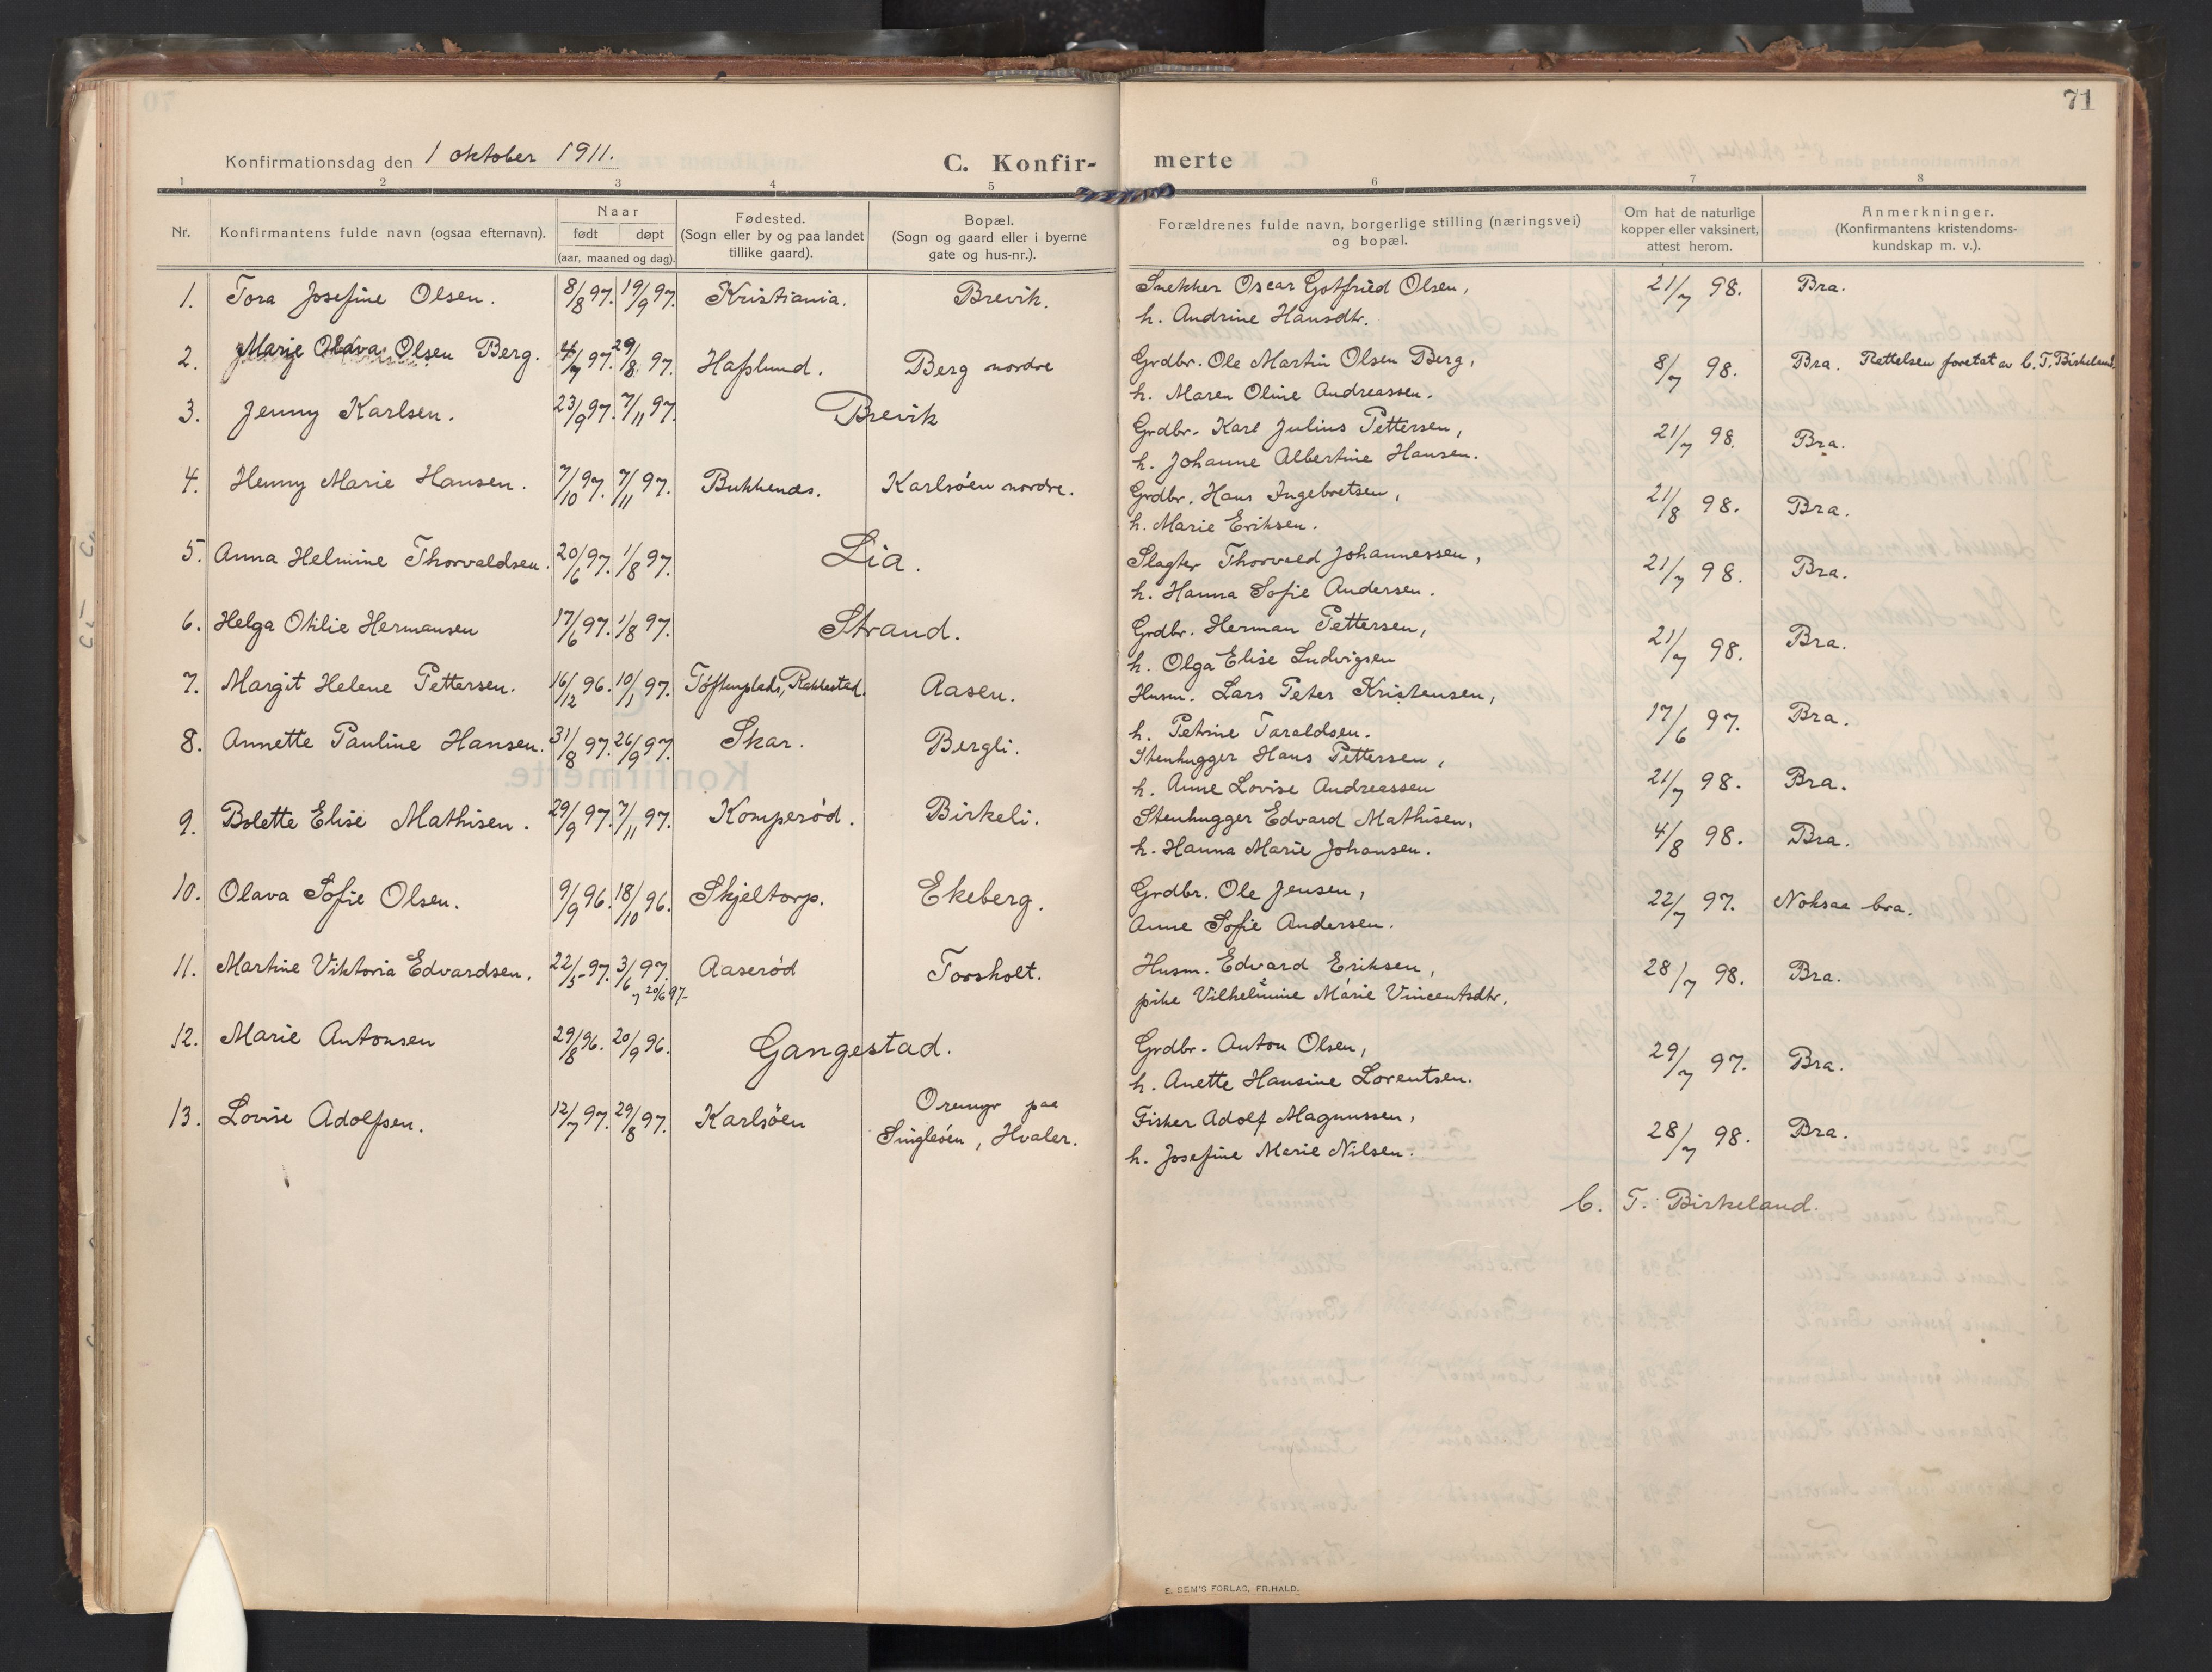 71
Konfirmationsdag den 1 oktober 1911.
C. Konfir-merte
1 2 3 4 5 6 7 8
Nr.
Konfirmantens fulde navn (ogsaa efternavn).
Naar
født døpt
(aar, maaned og dag).
Fødested.
(Sogn eller by og paa landet
tillike gaard).
Bopæl.
(Sogn og gaard eller i byerne
gate og hus-nr.).
Forældrenes fulde navn, borgerlige stilling (næringsvei)
og bopæl.
Om hat de naturlige
kopper eller vaksinert,
attest herom.
Anmerkninger.
(Konfirmantens kristendoms-
kundskap m. v.).
1. Tora Josefine Olsen. 8/8 97. 19/9 97. Kristiania. Brevik. Snekker Oscar Gotfried Olsen, 21/7 98. Bra.
h. Andrine Hansdtr.
2. Marie Olava Olsen Berg. 4/7 97. 29/8 97. Hafslund. Berg nordre Grdbr. Ole Martin Olsen Berg, 8/7 98. Bra. Rettelsen foretat av C. T. Birkeland.
h. Maren Oline Andreassen.
3. Jenny Karlsen. 23/9 97. 7/11 97. Brevik Grdbr. Karl Julius Pettersen, 21/7 98. Bra.
h. Johanne Albertine Hansen.
4. Henny Marie Hansen. 7/10 97. 7/11 97. Bukkenæs. Karlsøen nordre. Grdbr. Hans Ingebretsen, 21/8 98. Bra.
h. Marie Eriksen.
5. Anna Helmine Thorvaldsen. 20/6 97. 1/8 97. Lia. Slagter Thorvald Johannessen, 21/7 98. Bra.
h. Hanna Sofie Andersen.
6. Helga Otilie Hermansen 17/6 97. 1/8 97. Strand. Grdbr. Herman Pettersen, 21/7 98. Bra.
h. Olga Elise Ludvigsen
7. Margit Helene Pettersen. 16/12 96. 10/1 97. Rakkestad. Aasen. Husm. Lars Peter Kristensen, 17/6 97. Bra.
h. Petrine Taraldsen.
8. Annette Pauline Hansen. 31/8 97. 26/9 97. Skar. Bergli. Stenhugger Hans Pettersen, 21/7 98. Bra.
h. Anne Lovise Andreassen
9. Bolette Elise Mathisen. 29/9 97. 7/11 97. Komperød. Birkeli. Stenhugger Edvard Mathisen, 4/8 98. Bra.
h. Hanna Marie Johansen.
10. Olava Sofie Olsen. 9/9 96. 18/10 96. Skjeltorp. Ekeberg. Grdbr. Ole Jensen, 22/7 97. Noksaa bra.
Anne Sofie Andersen.
11. Martine Viktoria Edvardsen. 22/5 97. 3/6 97. Aaserød Torsholt. Husm. Edvard Eriksen, 28/7 98. Bra.
20/6 97 pike Vilhelmine Marie Vincentsdtr.
12. Marie Antonsen 29/8 96. 20/9 96. Gangestad. Grdbr. Anton Olsen, 29/7 97. Bra.
h. Anette Hansine Lorentsen.
13. Lovise Adolfsen. 12/7 97. 29/8 97. Karlsöen Oremyr paa Fisker Adolf Magnussen, 28/7 98. Bra.
Singleöen, Hvaler. h. Josefine Marie Nilsen.
C. T. Birkeland.
E. SEM'S FORLAG, FR.HALD.